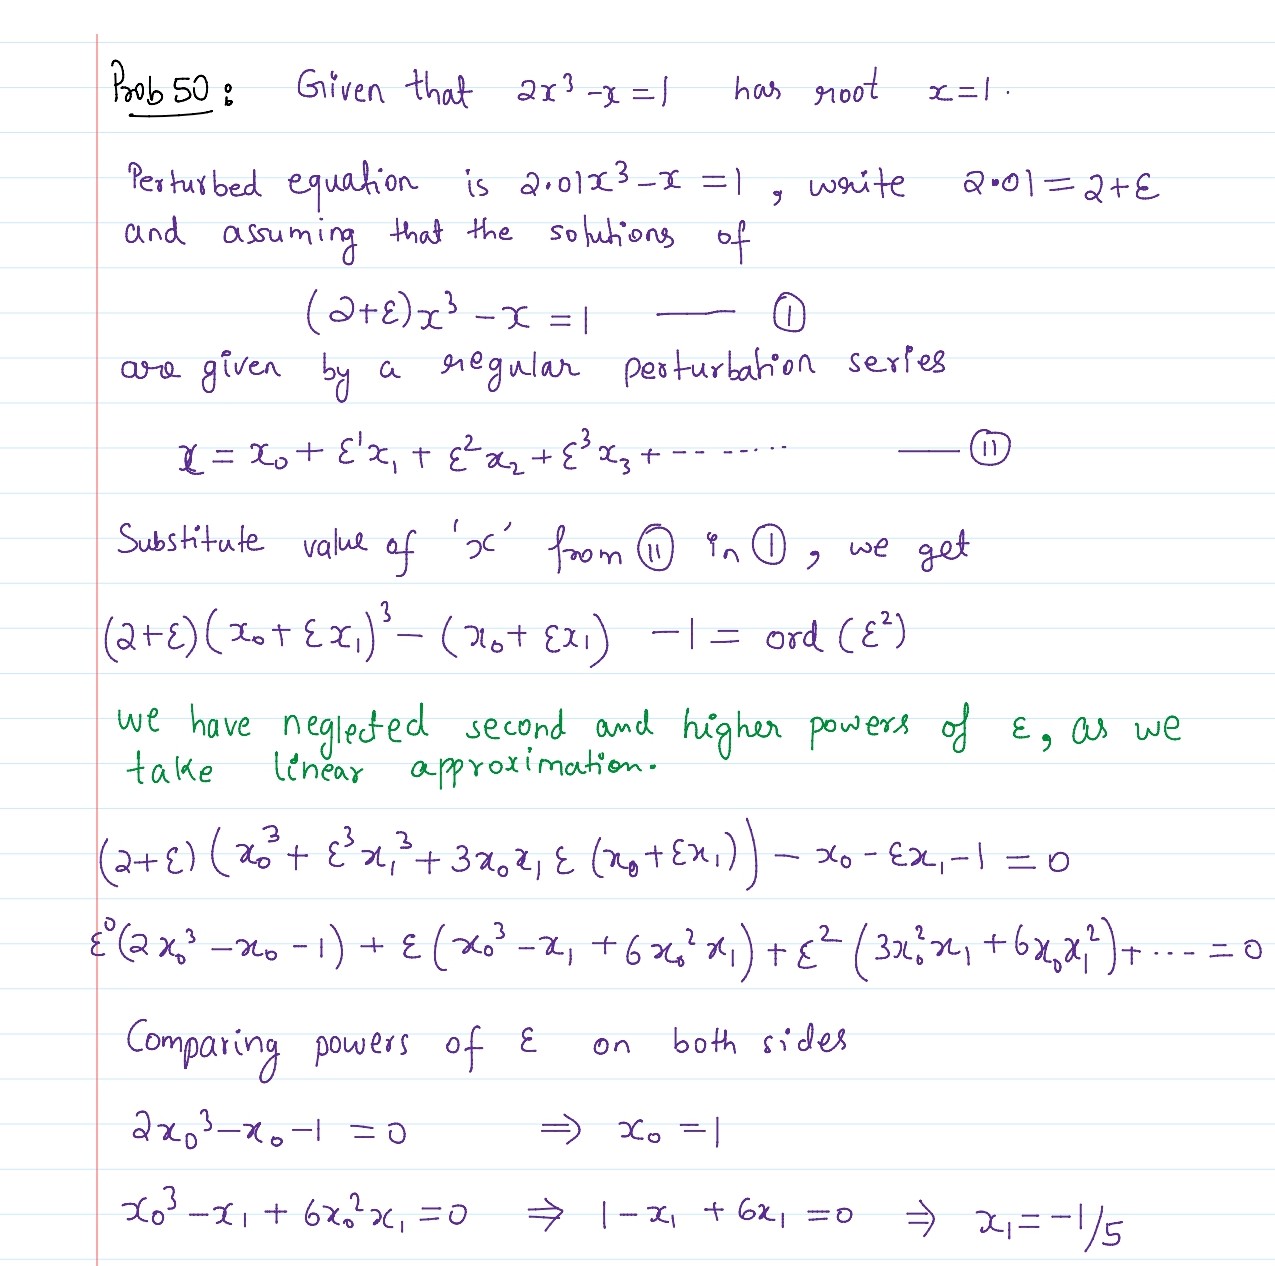 Prob 50 : Given that 2x³ - x = 1 has root x = 1 .
Perturbed equation is 2.01x³ - x = 1 , write 2.01 = 2 + ε
and assuming that the solutions of
(2+ε)x³ - x = 1 —— ①
are given by a regular perturbation series
x = x₀ + ε¹x₁ + ε²x₂ + ε³x₃ + -------- —— ⑪
Substitute value of 'x' from ⑪ in ①, we get
(2+ε)(x₀ + εx₁)³ - (x₀ + εx₁) - 1 = ord (ε²)
we have neglected second and higher powers of ε, as we
take linear approximation.
(2+ε)(x₀³ + ε³x₁³ + 3x₀x₁ε (x₀ + εx₁)) - x₀ - εx₁ - 1 = 0
ε⁰(2x₀³ - x₀ - 1) + ε(x₀³ - x₁ + 6x₀²x₁) + ε²(3x₀²x₁ + 6x₀x₁²) + ---- = 0
Comparing powers of ε on both sides
2x₀³ - x₀ - 1 = 0 ⇒ x₀ = 1
x₀³ - x₁ + 6x₀²x₁ = 0 ⇒ 1 - x₁ + 6x₁ = 0 ⇒ x₁ = -1/5